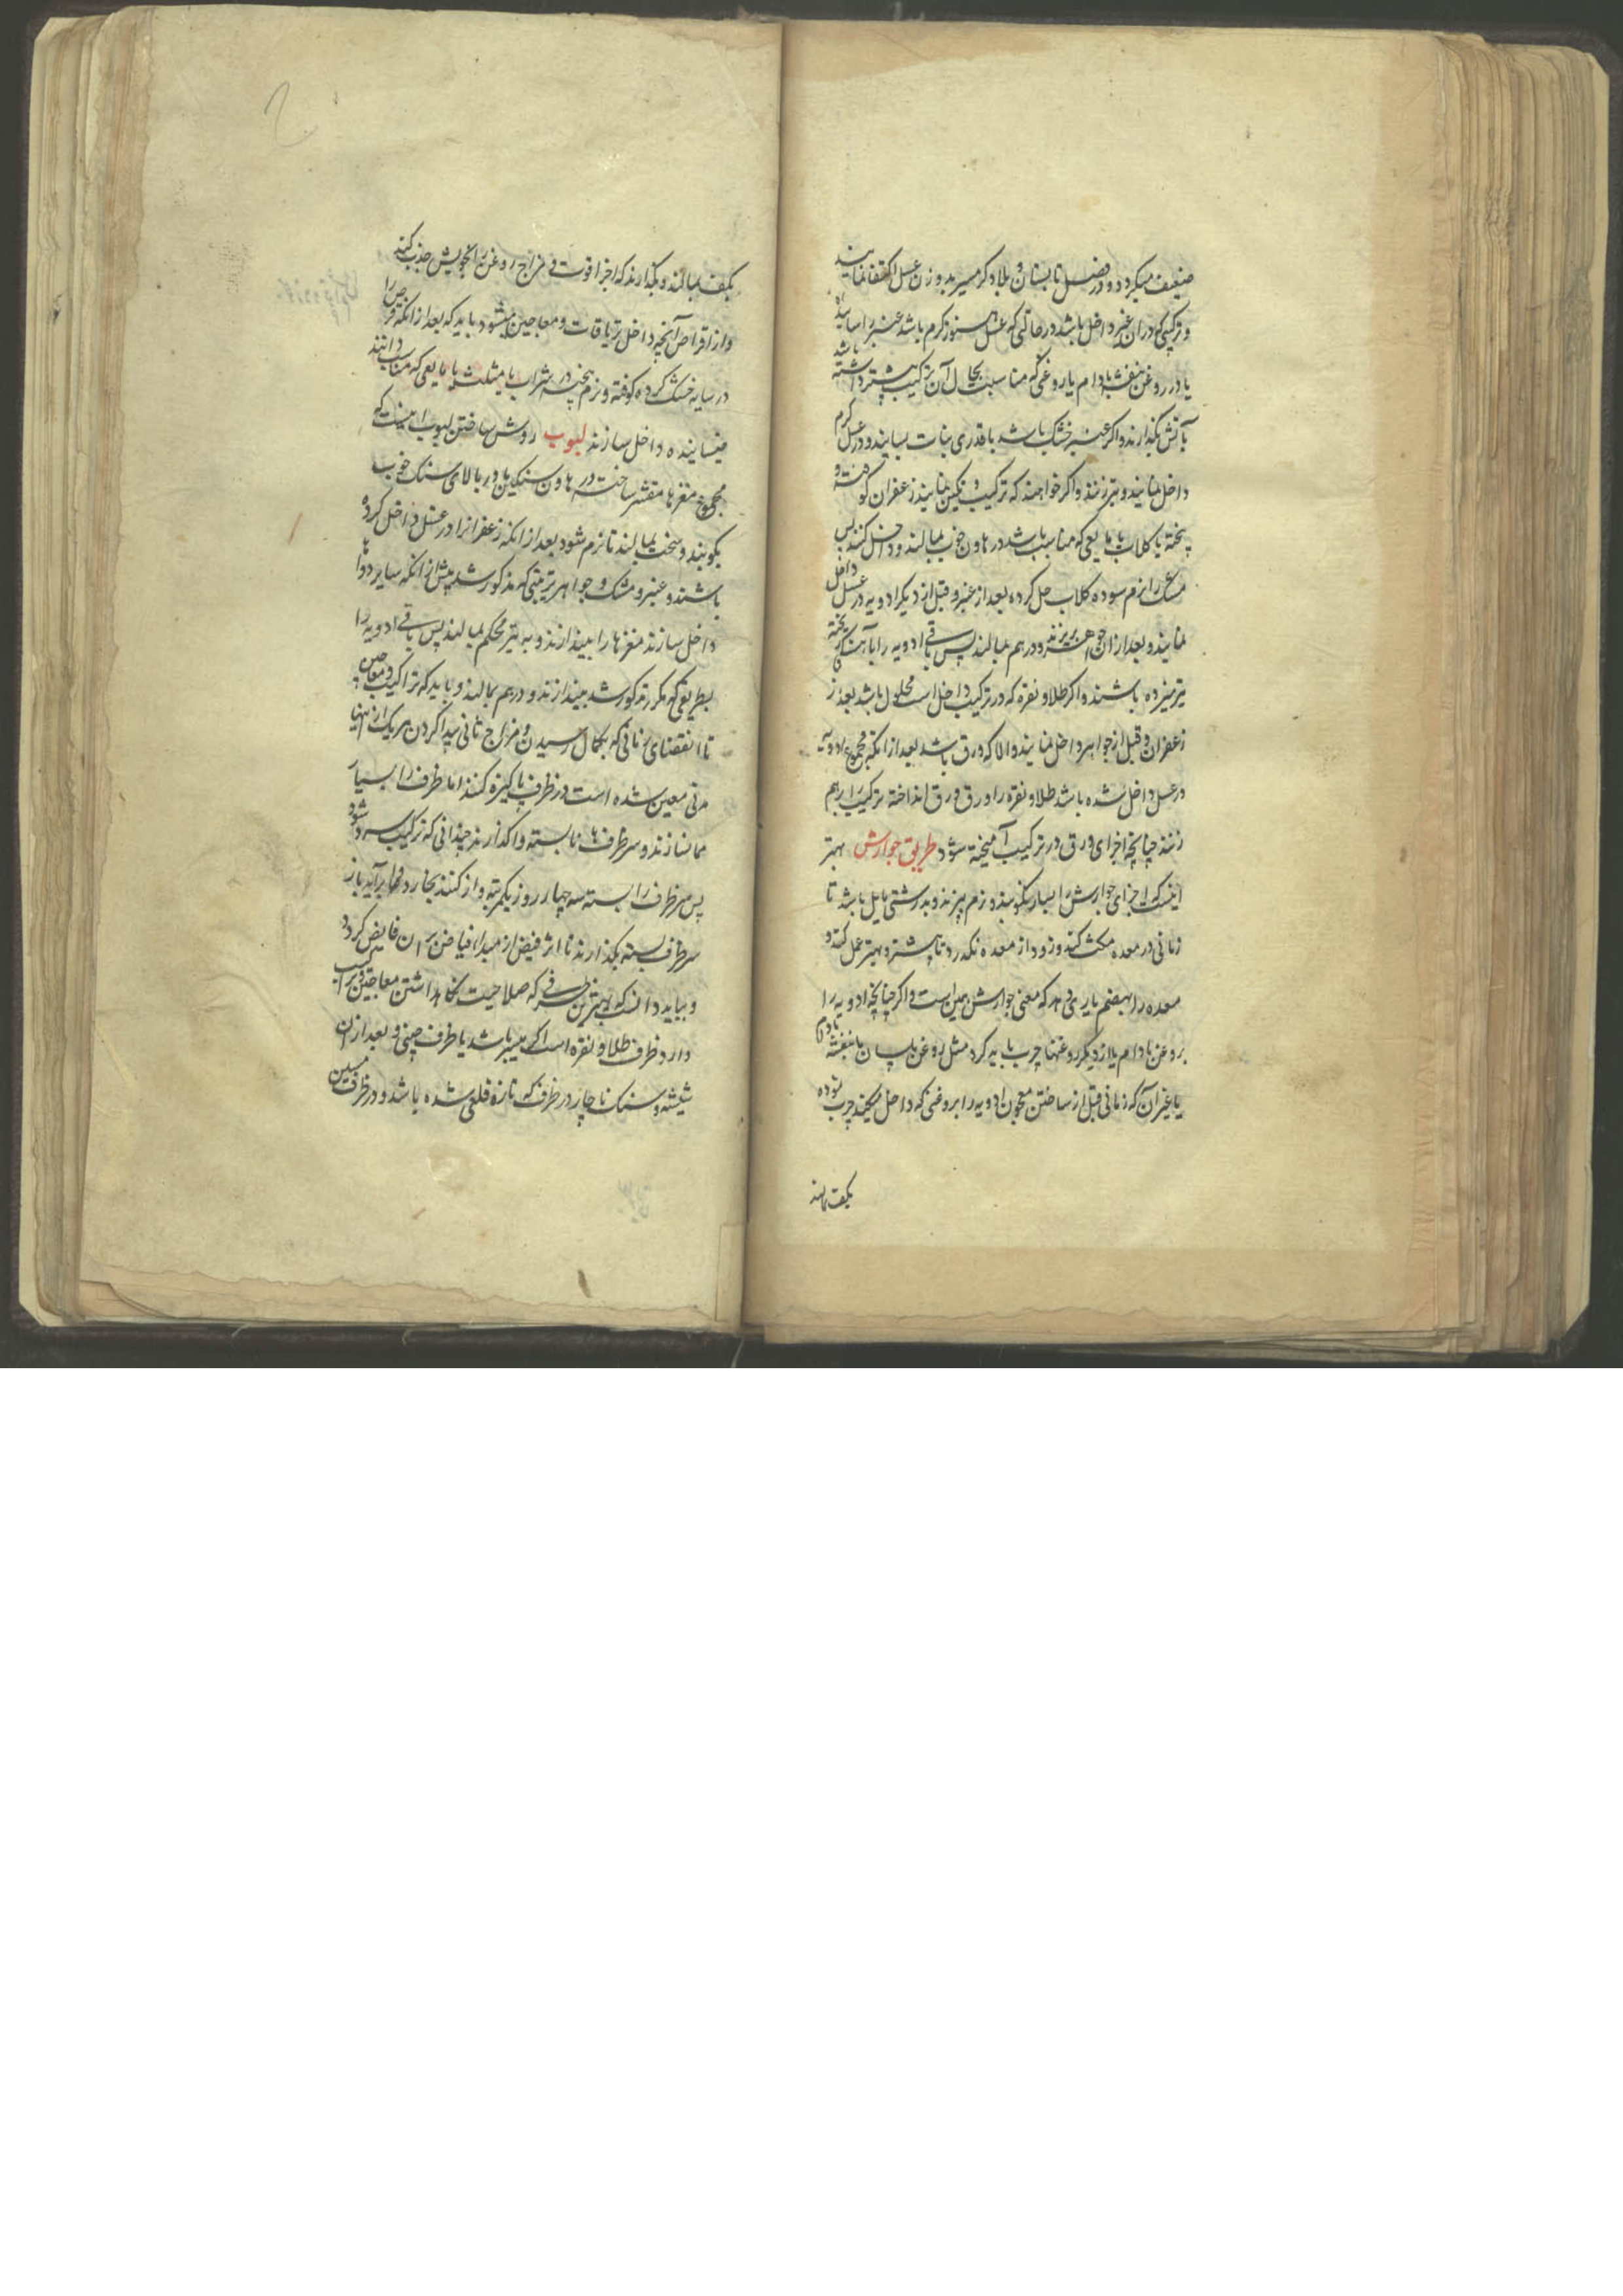 ضعیف میکردد و در فصل تابستان و بلاد کرمسیر بدو وزن عسل اکتفا نمایند
و ترکیبی که دران عنبر داخل باشد در حالتی که عسل هنوز کرم باشد عنبر را سائیده
یا در روغن بنفشه بادام یا روغنی که مناسبت بحال آن ترکیب بیشتر داشته باشد
بآتش بکدازند و اکر عنبر خشک باشد با قدری نبات بسایند و در عسل کرم
داخل نمایند و بر زنند و اکر خواهند که ترکیب رنکین نمایند زعفران کوفته و
پخته با کلاب یا مایعی که مناسب باشد در هاون خوب بمالند و داخل کنند پس
مشک را نرم سوده کلاب حل کرده بعد از عنبر و قبل از دیکر ادویه در عسل داخل
نمایند و بعد ازان جواهر بریزند و درهم بمالند پس باقی ادویه را باهستکی ریخته
بر میزده باشند و اکر طلا و نقره که در ترکیب داخل است محلول باشد بعد از
زعفران و قبل از جواهر داخل نمایند و الا که ورق باشد بعد از انکه مجموع ادویه
در عسل داخل شده باشد طلا و نقره را ورق ورق انداخته ترکیب را برهم
زنند چنانچه اجزای ورق در ترکیب آمیخته شود طریق جوارش بهتر
اینست که اجزای جوارش را بسیار نکوبند و نرم نپزند و بدرشتی مایل باشد تا
زمانی در معده مکث کند و زود از معده نکدرد تا بیشتر و بهتر عمل کند و
معده را بهضم یاری دهد که معنی جوارش همین است و اکر چنانچه ادویه را
بروغن بادام یا از دیکر روغنها چرب باید کرد مثل روغن بلسان یا بنفشه بادام
یا غیر آن که زمانی قبل از ساختن معجون ادویه را بروغنی که داخل میکنند چرب نموده
بکف بمالند
بکف بمالند و بکذارند که اجزا قوت و مزاج روغن را بخویش جذب کند
و از اقراص آنچه داخل تریاقات و معاجین میشود باید که بعد از انکه قرص را
در سایه خشک کرده کوفته و نرم بیخته در شراب یا مثلث یا مایعی که مناسب دانند
خیسانیده داخل سازند لبوب روش ساختن لبوب اینست که
مجموع مغزها مقشر ساخته در هاون سنکین یا در بالای سنک خوب
بکوبند و سخت بمالند تا نرم شود بعد از انکه زعفرانرا در عسل داخل کرده
باشند و عنبر و مشک و جواهر بترتیبی که مذکور شد پیش از انکه سایر دواها
داخل سازند مغزها را بیندازند و به تیر محکم بمالند پس باقی ادویه را
بطریقی که مکرر مذکور شد بیندازند و درهم بمالند و باید که تراکیب و معاجین
تا انقضای زمانی که بکمال رسیدن و مزاج ثانی پیدا کردن هر یک از اینها
مدتی معین شده است در ظرف پاکیزه کنند اما ظرف را بسیار
مملو نسازند و سر ظرف نابسته واکذارند چندانی که ترکیب سرد شود
پس سر ظرف را بسته سه چهار روز یکمرتبه واز کنند بخار دلها برآید باز
سر ظرف بسته بکذارند تا اثر فیض از مبدا فیاض بر آن فایض کردد
و بباید دانست که بهترین ظرفی که صلاحیت نکاهداشتن معاجین و تراکیب
دارد ظرف طلا و نقره است اکر میسر باشد یا ظرف چینی و بعد ازان
شیشه و سنک ناچار در ظرفی که تازه قلعی شده باشد و در ظرف مسین